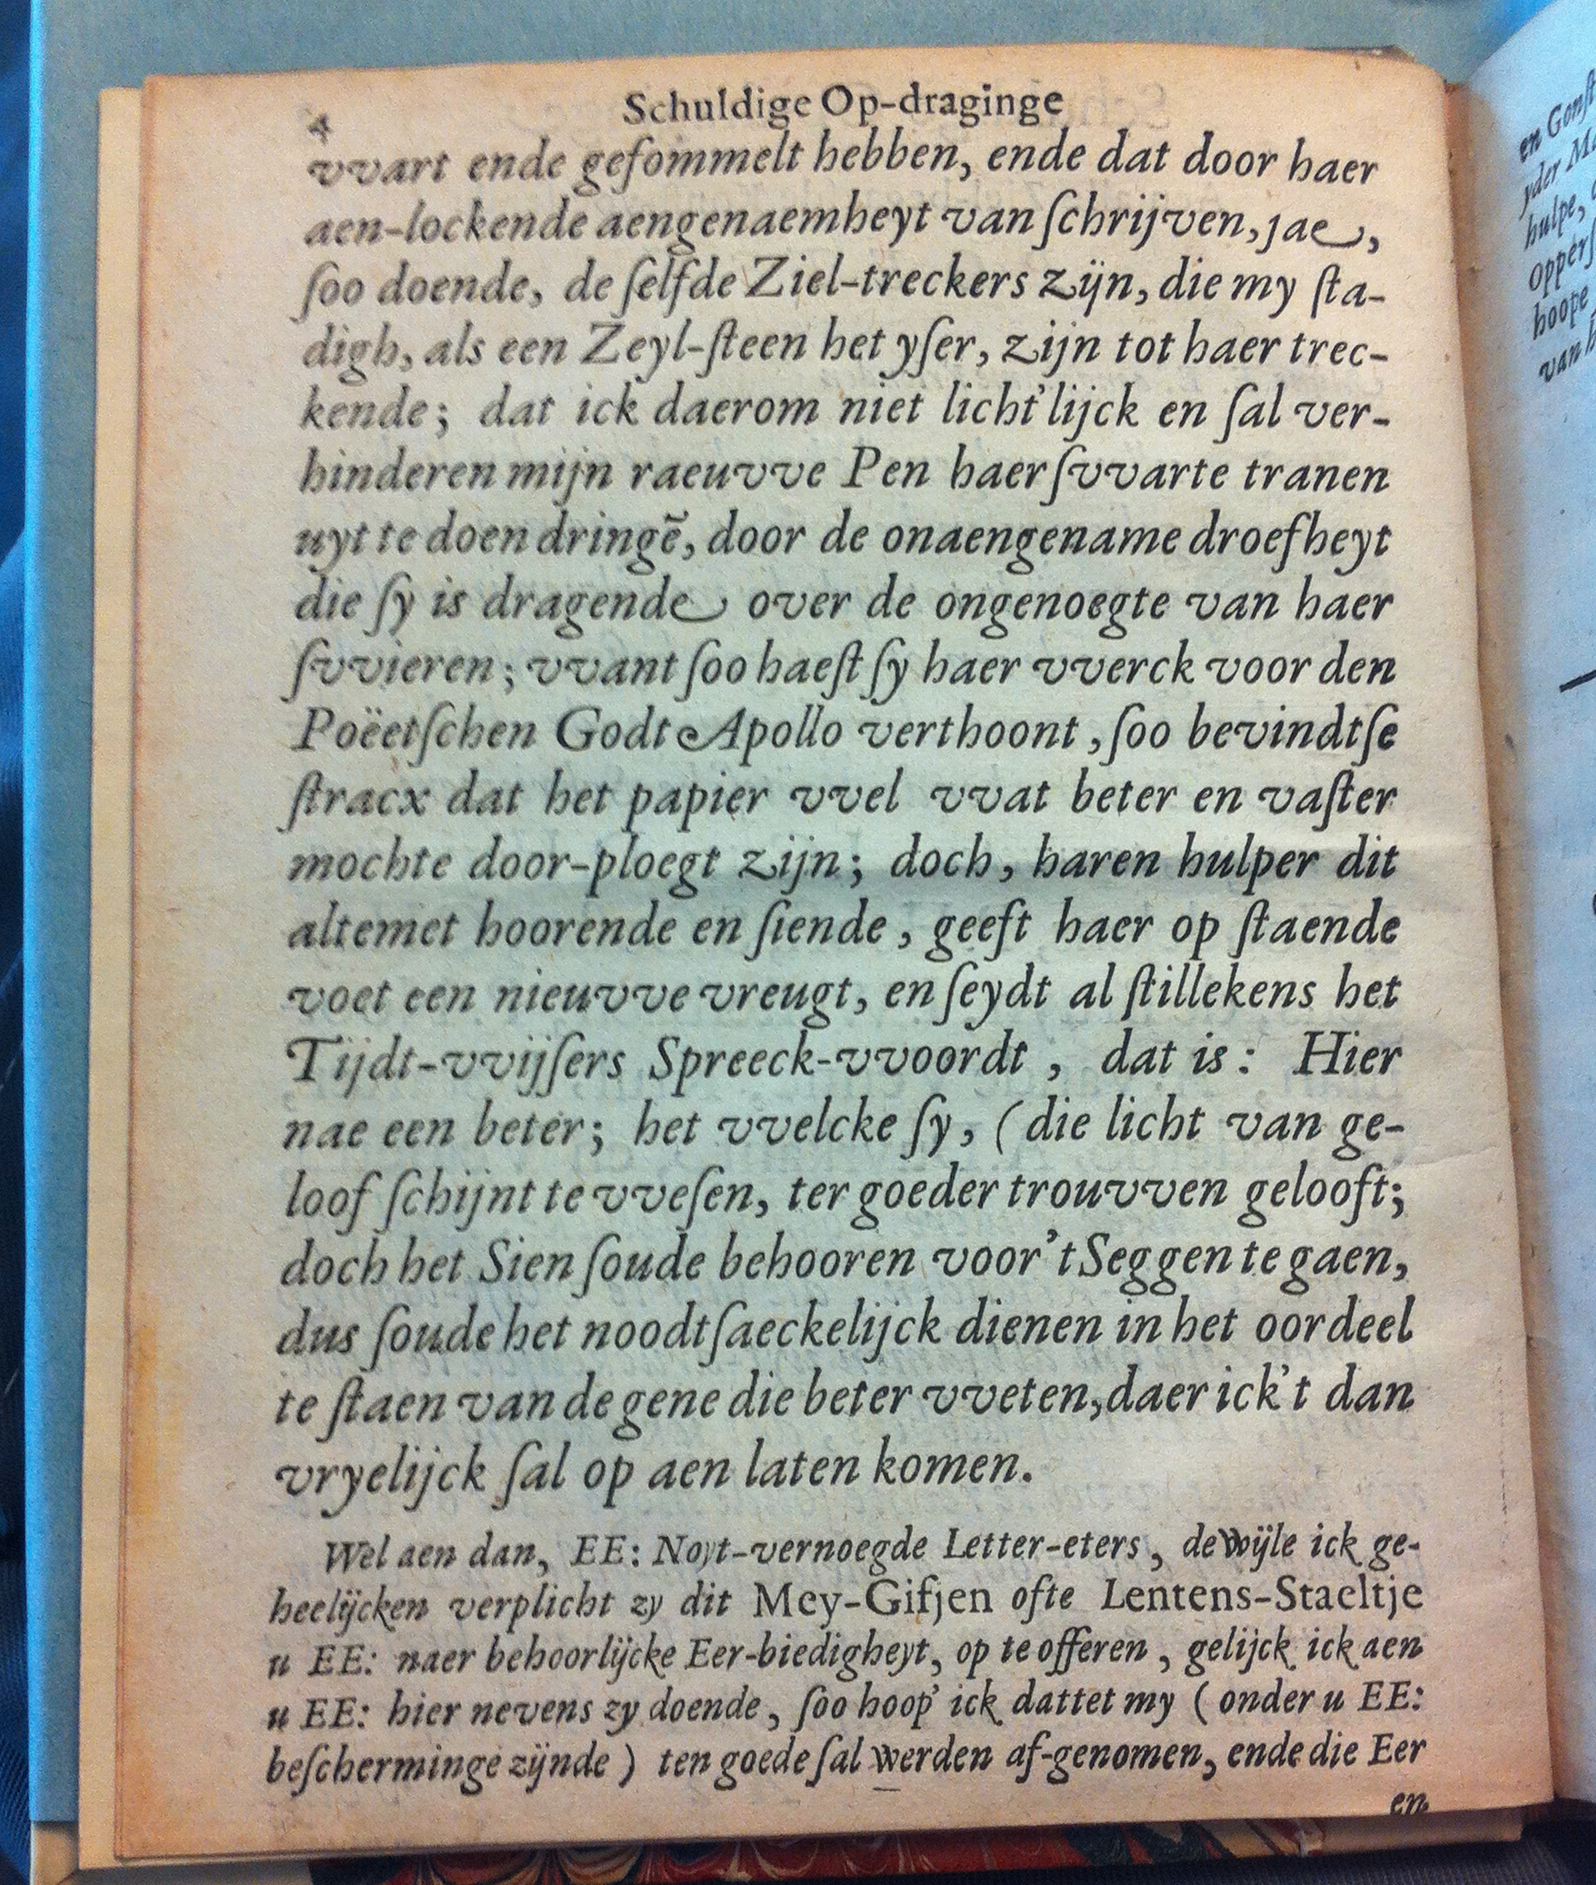 4
Schuldige Op-draginge
vvart ende gesommelt hebben, ende dat door haer
aen-lockende aengenaemheyt van ſchrijven, jae,
ſoo doende, de ſelfde Ziel-treckers zijn, die my ſta-
digh, als een Zeyl-ſteen het yſer, zijn tot haer trec-
kende; dat ick daerom niet licht'lijck en ſal ver-
hinderen mijn raeuvve Pen haer ſvvarte tranen
uyt te doen dringẽ, door de onaengename droefheyt
die ſy is dragende over de ongenoegte van haer
ſvvieren; vvant ſoo haeſt ſy haer vverck voor den
Poëetſchen Godt Apollo verthoont, ſoo bevindtſe
ſtracx dat het papier vvel vvat beter en vaſter
mochte door-ploegt zijn; doch, haren hulper dit
altemet hoorende en ſiende, geeft haer op ſtaende
voet een nieuvve vreugt, en ſeydt al ſtillekens het
Tijdt-vvijſers Spreeck-vvoordt, dat is: Hier
nae een beter; het vvelcke ſy, (die licht van ge-
loof ſchijnt te vveſen, ter goeder trouvven gelooft;
doch het Sien ſoude behooren voor 't Seggen te gaen,
dus ſoude het noodtſaeckelijck dienen in het oordeel
te ſtaen van de gene die beter vveten, daer ick't dan
vryelijck ſal op aen laten komen.
Wel aen dan, EE: Noyt-vernoegde Letter-eters, dewijle ick ge-
heelijcken verplicht zy dit Mey-Gifjen ofte Lentens-Staeltje
u EE: naer behoorlijcke Eer-biedigheyt, op te offeren, gelijck ick aen
u EE: hier nevens zy doende, ſoo hoop' ick dattet my (onder u EE:
beſcherminge zijnde) ten goede ſal werden af-genomen, ende die Eer
en
en Gonſt
yder
hulpe,
hoope